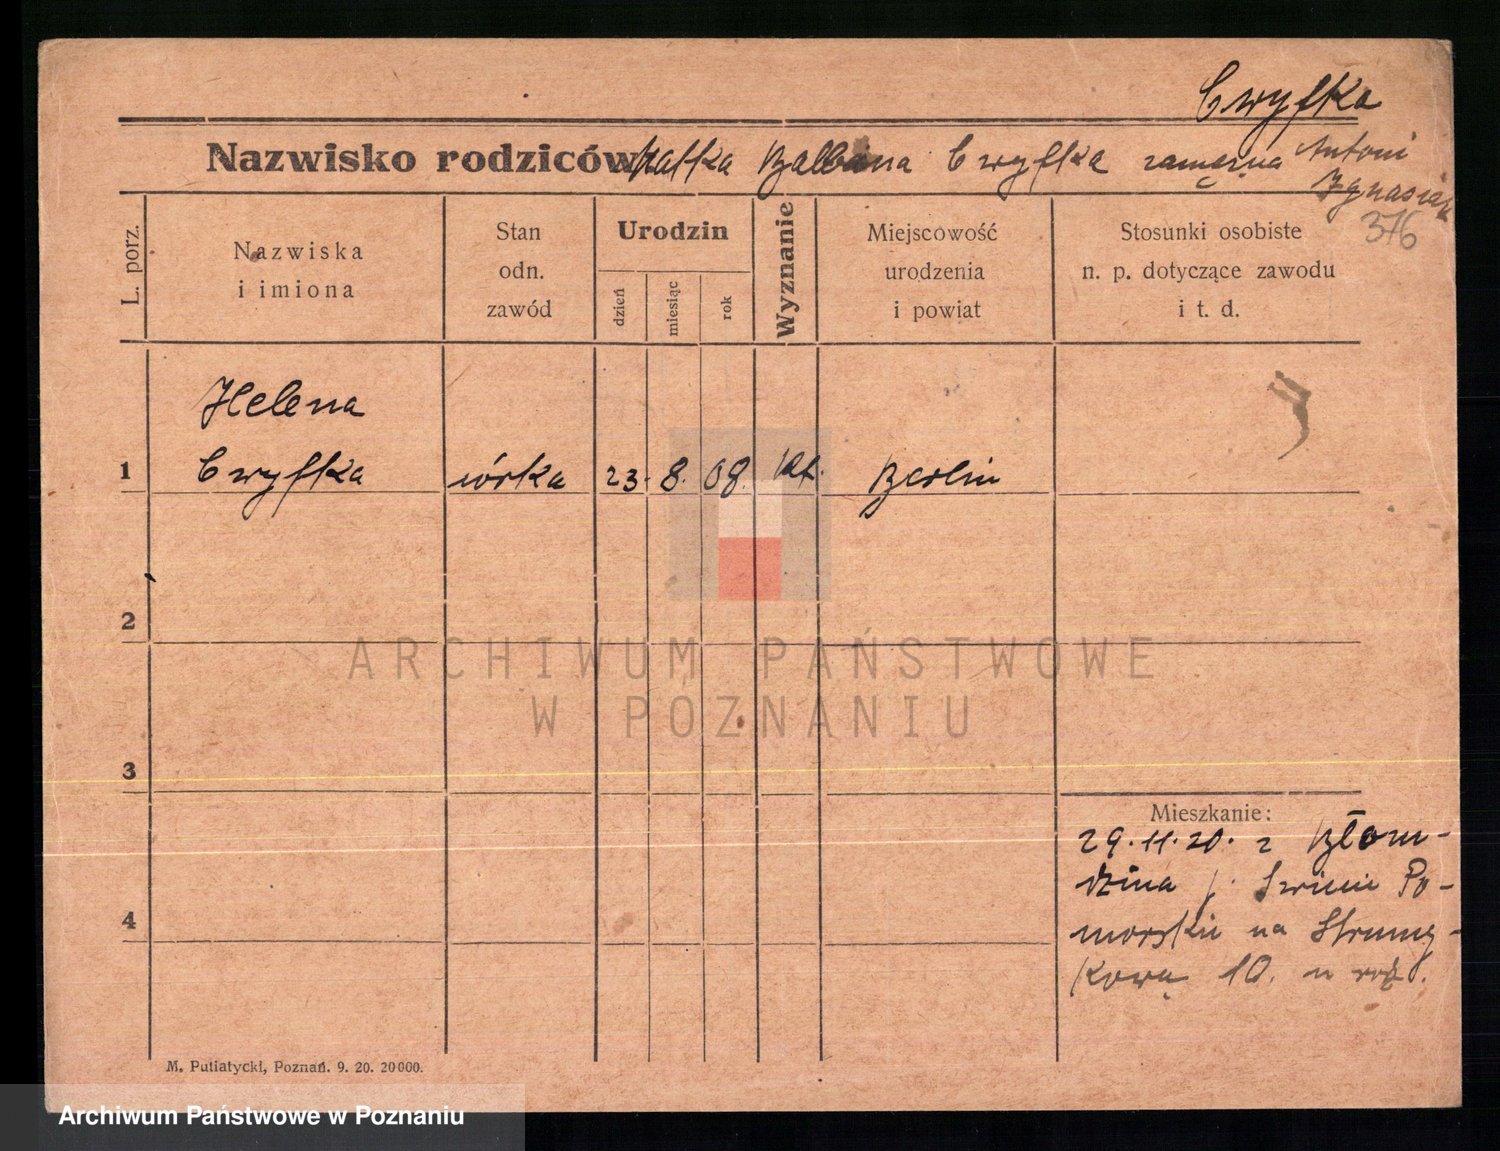 Cwyfka
Nazwisko rodziców: Matka Balbina Cwyfka zamężna Antoni
Ignasiak
376
L. porz.
Nazwiska
i imiona
Stan
odn.
zawód
Urodzin
dzień
miesiąc
rok
Wyznanie
Miejscowość
urodzenia
i powiat
Stosunki osobiste
n. p. dotyczące zawodu
i t. d.
Helena
1 Cwyfka córka 23. 8. 08. kat. Berlin
2
ARCHIWUM PAŃSTWOWE
W POZNANIU
3
Mieszkanie:
29.11.20. z Błom-
dzina p. Po-
morskie na Strumy-
4
kową 10. u
M. Putiatycki, Poznań. 9. 20. 20000.
Archiwum Państwowe w Poznaniu